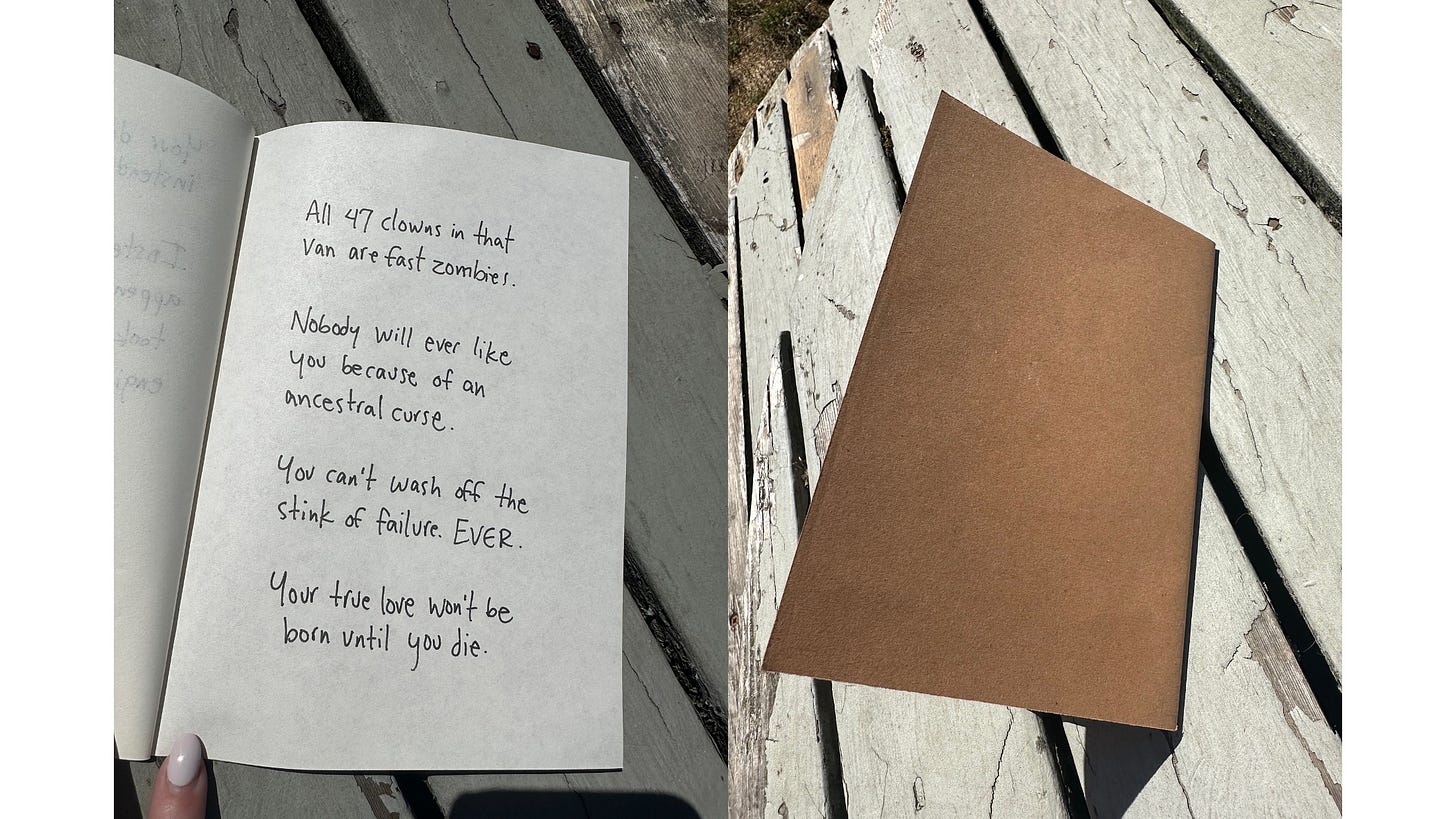 All 47 clowns in that
van are fast zombies.
Nobody will ever like
you because of an
ancestral curse.
You can't wash off the
stink of failure. EVER.
Your true love won't be
born until you die.